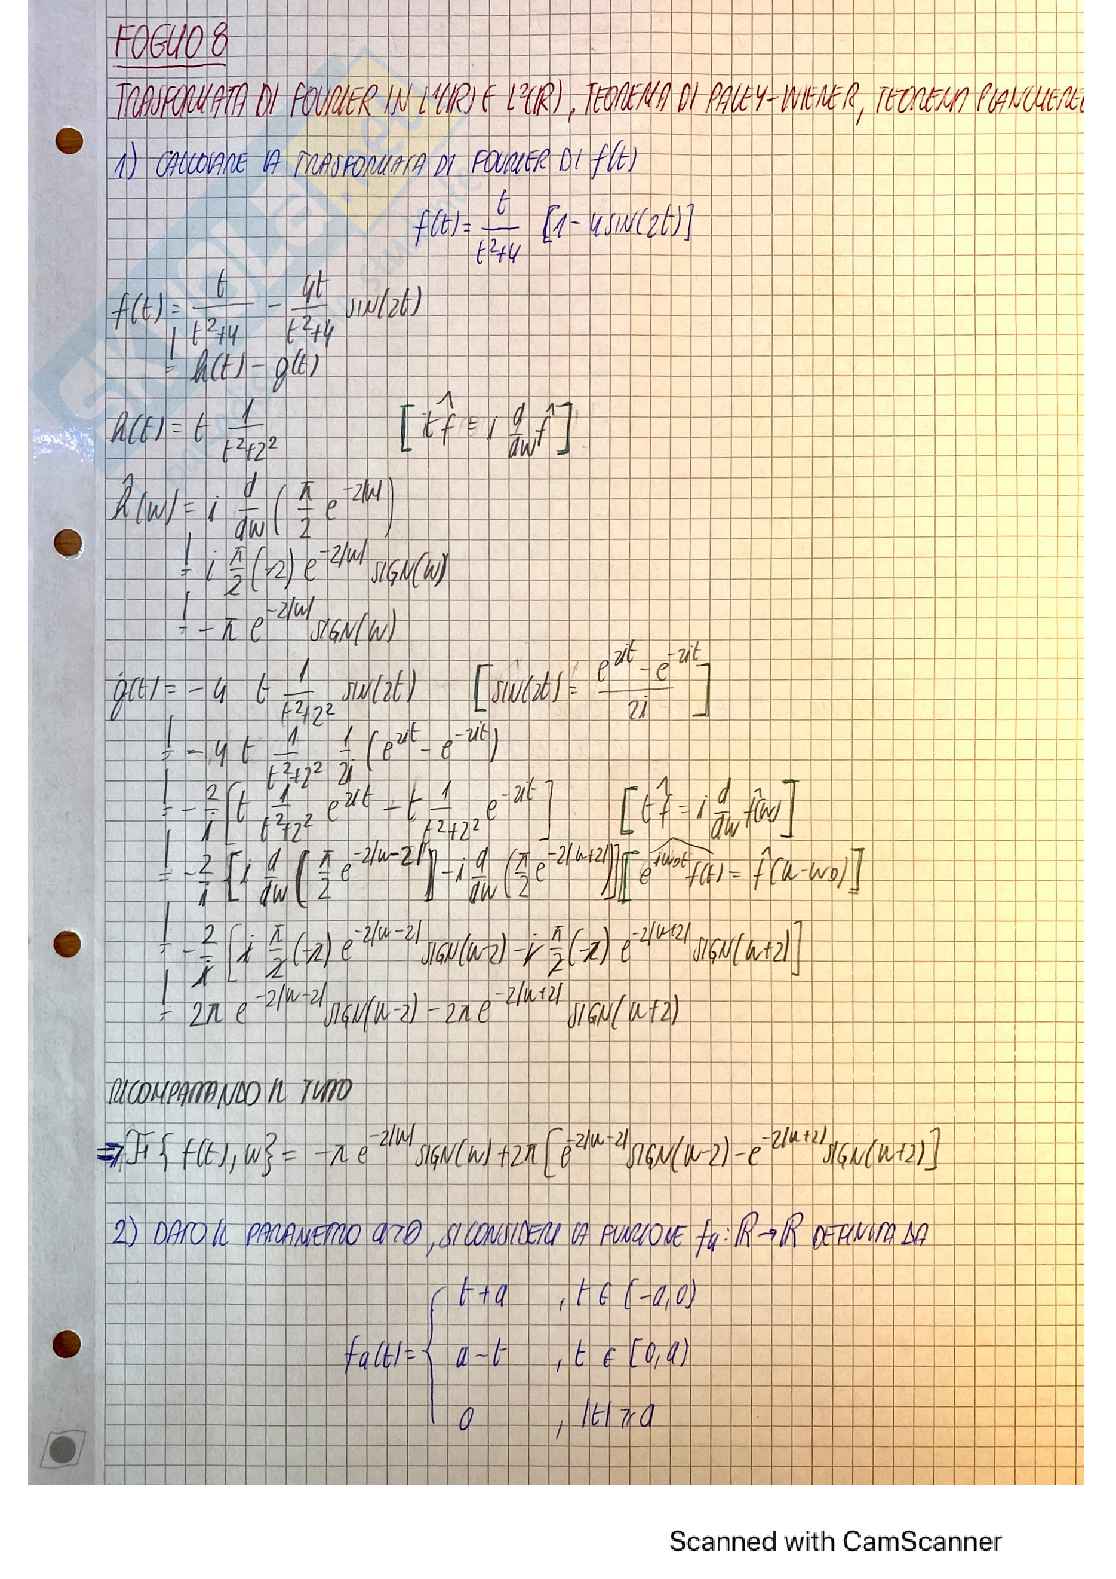 FOGLIO 8
TRASFORMATA DI FOURIER IN L¹(R) E L²(R), TEOREMA DI PALEY-WIENER, TEOREMA PLANCHEREL
1) CALCOLARE LA TRASFORMATA DI FOURIER DI f(t)
f(t) = t/(t²+4) [1 - 4 SIN(2t)]
f(t) = t/(t²+4) - 4t/(t²+4) SIN(2t)
= h(t) - g(t)
h(t) = t 1/(t²+2²) [t̂f = i d/dw f̂]
ĥ(w) = i d/dw (π/2 e^{-2|w|})
= i π/2 (-2) e^{-2|w|} SIGN(w)
= - π e^{-2|w|} SIGN(w)
g(t) = - 4 t 1/(t²+2²) SIN(2t) [SIN(2t) = (e^{2it} - e^{-2it})/2i]
= - 4 t 1/(t²+2²) 1/2i (e^{2it} - e^{-2it})
= - 2/i [t 1/(t²+2²) e^{2it} - t 1/(t²+2²) e^{-2it}] [t̂f = i d/dw f̂(w)]
= - 2/i [i d/dw (π/2 e^{-2|w-2|}) - i d/dw (π/2 e^{-2|w+2|})] [e^{iw₀t} f(t) = f̂(w-w₀)]
= - 2/i [i π/2 (-2) e^{-2|w-2|} SIGN(w-2) - i π/2 (-2) e^{-2|w+2|} SIGN(w+2)]
= 2π e^{-2|w-2|} SIGN(w-2) - 2π e^{-2|w+2|} SIGN(w+2)
RICOMPATTANDO IL TUTTO
⇒ F{f(t), w} = - π e^{-2|w|} SIGN(w) + 2π [e^{-2|w-2|} SIGN(w-2) - e^{-2|w+2|} SIGN(w+2)]
2) DATO IL PARAMETRO a>0, SI CONSIDERI LA FUNZIONE fa: R → R DEFINITA DA
t+a , t ∈ (-a,0)
fa(t) = { a-t , t ∈ [0,a)
0 , |t| ≥ a
Scanned with CamScanner